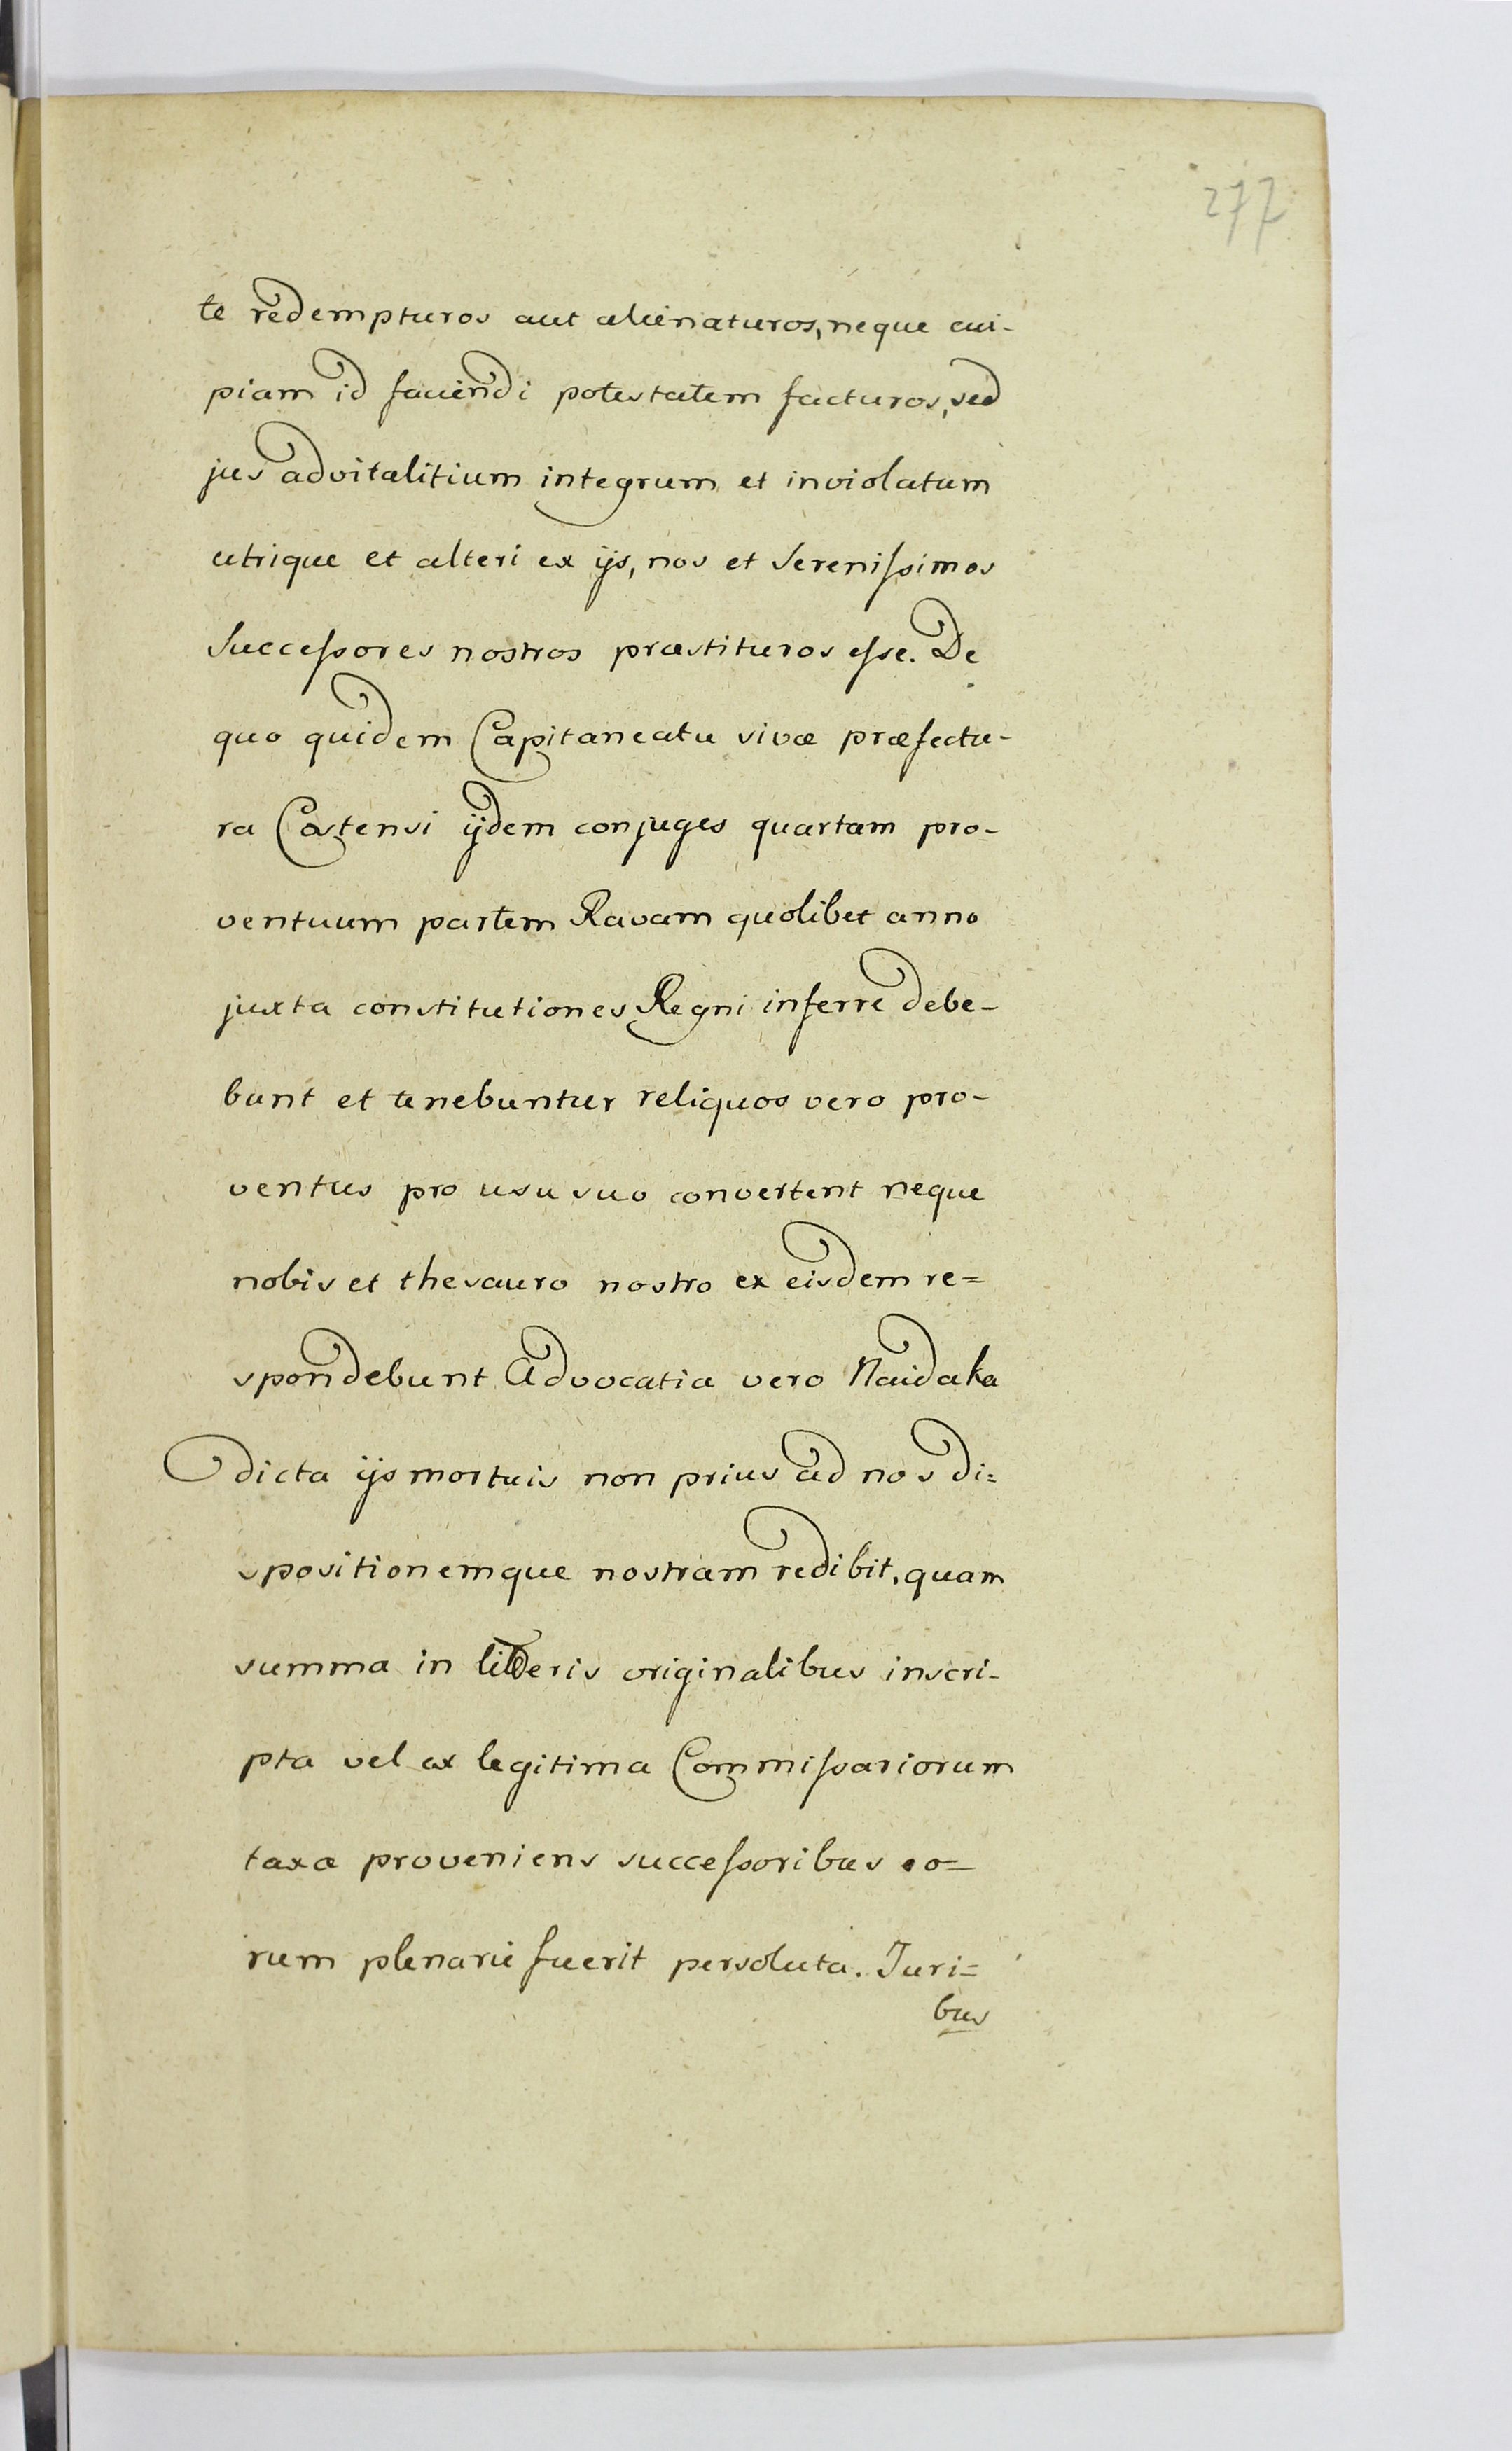 277
te redempturos aut alienaturos, neque cui-
piam id faciendi potestatem facturos, sed
jus advitalitium integrum et inviolatum
utrique et alteri ex ijs, nos et Serenissimos
Successores nostros præstituros esse. De
quo quidem Capitaneatu sivæ præfectu-
ra Costensi ijdem conjuges quartam pro-
ventuum partem Ravam quolibet anno
juxta constitutiones Regni inferre debe-
bunt et tenebuntur reliquos vero pro-
ventus pro usu suo convertent neque
nobis et thesauro nostro ex eisdem re=
spondebunt Advocatia vero Naidaka
dicta ijs mortuis non prius ad nos di=
spositionemque nostram redibit, quam
summa in originalibus inscri-
pta vel ex legitima Commissariorum
taxa proveniens successoribus eo=
rum plenarie fuerit persoluta. Juri=
bus